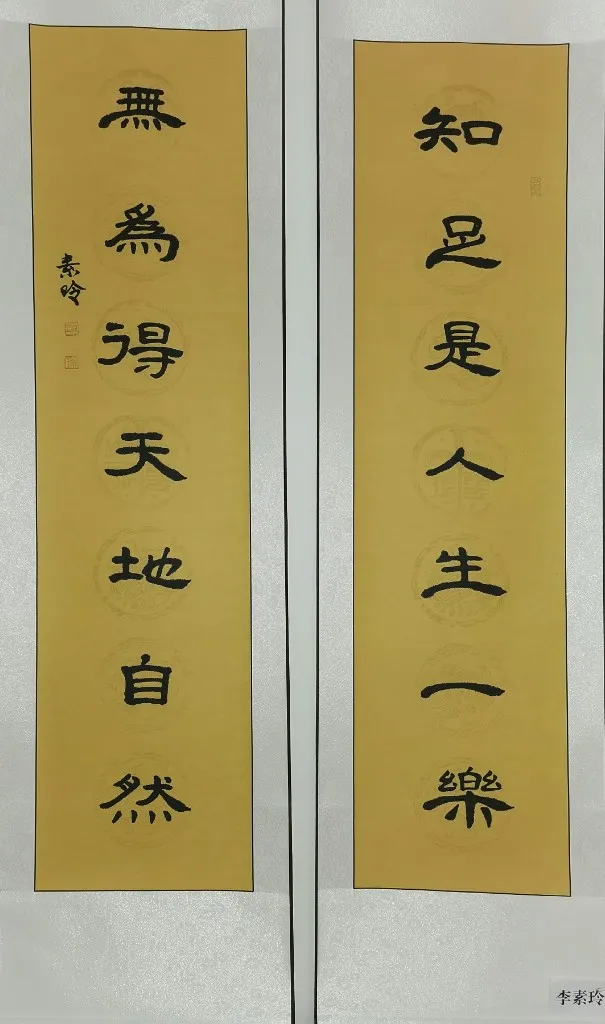 知足是人生一樂
無為得天地自然
素玲
李素玲